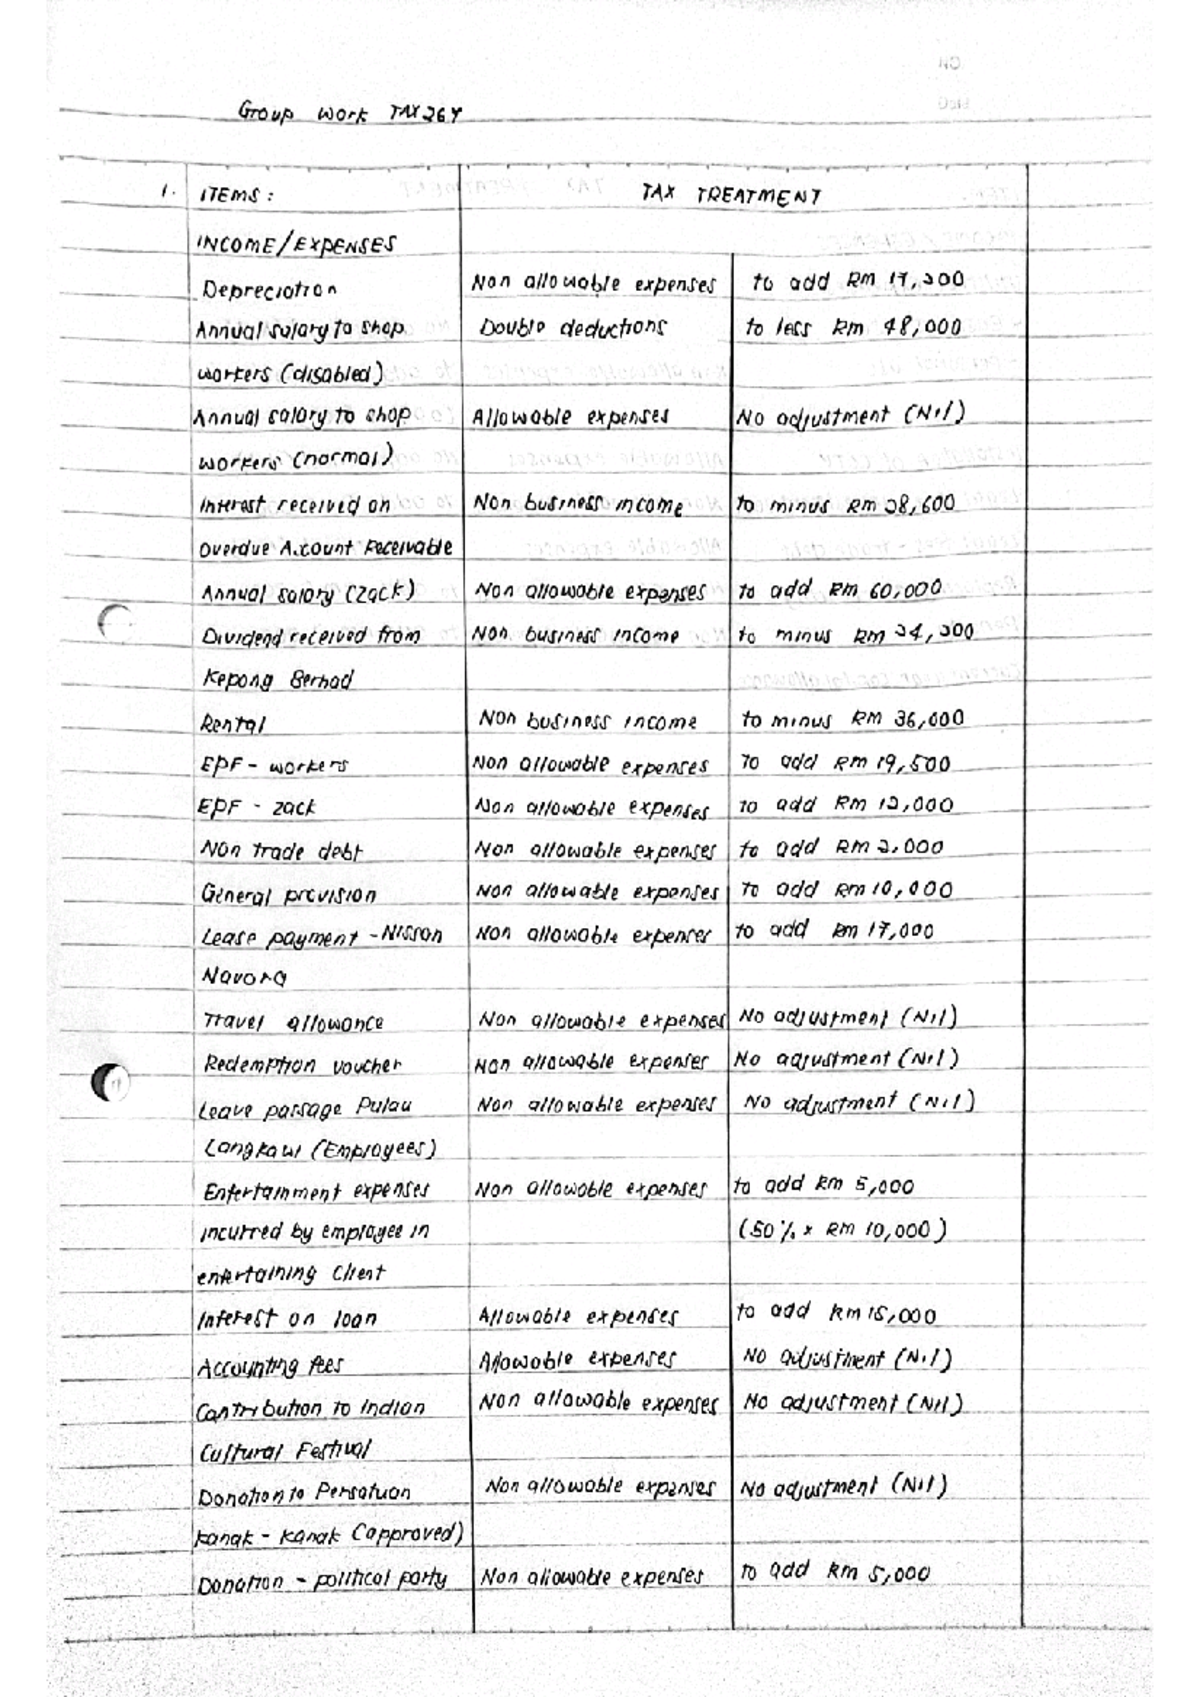 Group Work TAX 267
1. ITEMS: TAX TREATMENT
INCOME/EXPENSES
Depreciation Non allowable expenses to add RM 17,200
Annual salary to shop Double deductions to less RM 48,000
workers (disabled)
Annual salary to shop Allowable expenses No adjustment (Nil)
workers (normal)
Interest received on Non business income to minus RM 28,600
Overdue Account Receivable
Annual salary (Zack) Non allowable expenses to add RM 60,000
Dividend received from Non business income to minus RM 24,200
Kepong Berhad
Rental Non business income to minus RM 36,000
EPF - workers Non allowable expenses To add RM 19,500
EPF - Zack Non allowable expenses to add RM 12,000
Non trade debt Non allowable expenses to add RM 2,000
General provision Non allowable expenses to add RM 10,000
Lease payment - Nissan Non allowable expenses to add RM 17,000
Navara
Travel allowance Non allowable expenses No adjustment (Nil)
Redemption voucher Non allowable expenses No adjustment (Nil)
Leave passage Pulau Non allowable expenses No adjustment (Nil)
Langkawi (Employees)
Entertainment expenses Non allowable expenses to add RM 5,000
incurred by employee in (50% x RM 10,000)
entertaining client
Interest on loan Allowable expenses to add RM 15,000
Accounting fees Allowable expenses No adjustment (Nil)
Contribution to Indian Non allowable expenses No adjustment (Nil)
Cultural Festival
Donation to Persatuan Non allowable expenses No adjustment (Nil)
kanak - kanak (approved)
Donation - political party Non allowable expenses to add RM 5,000